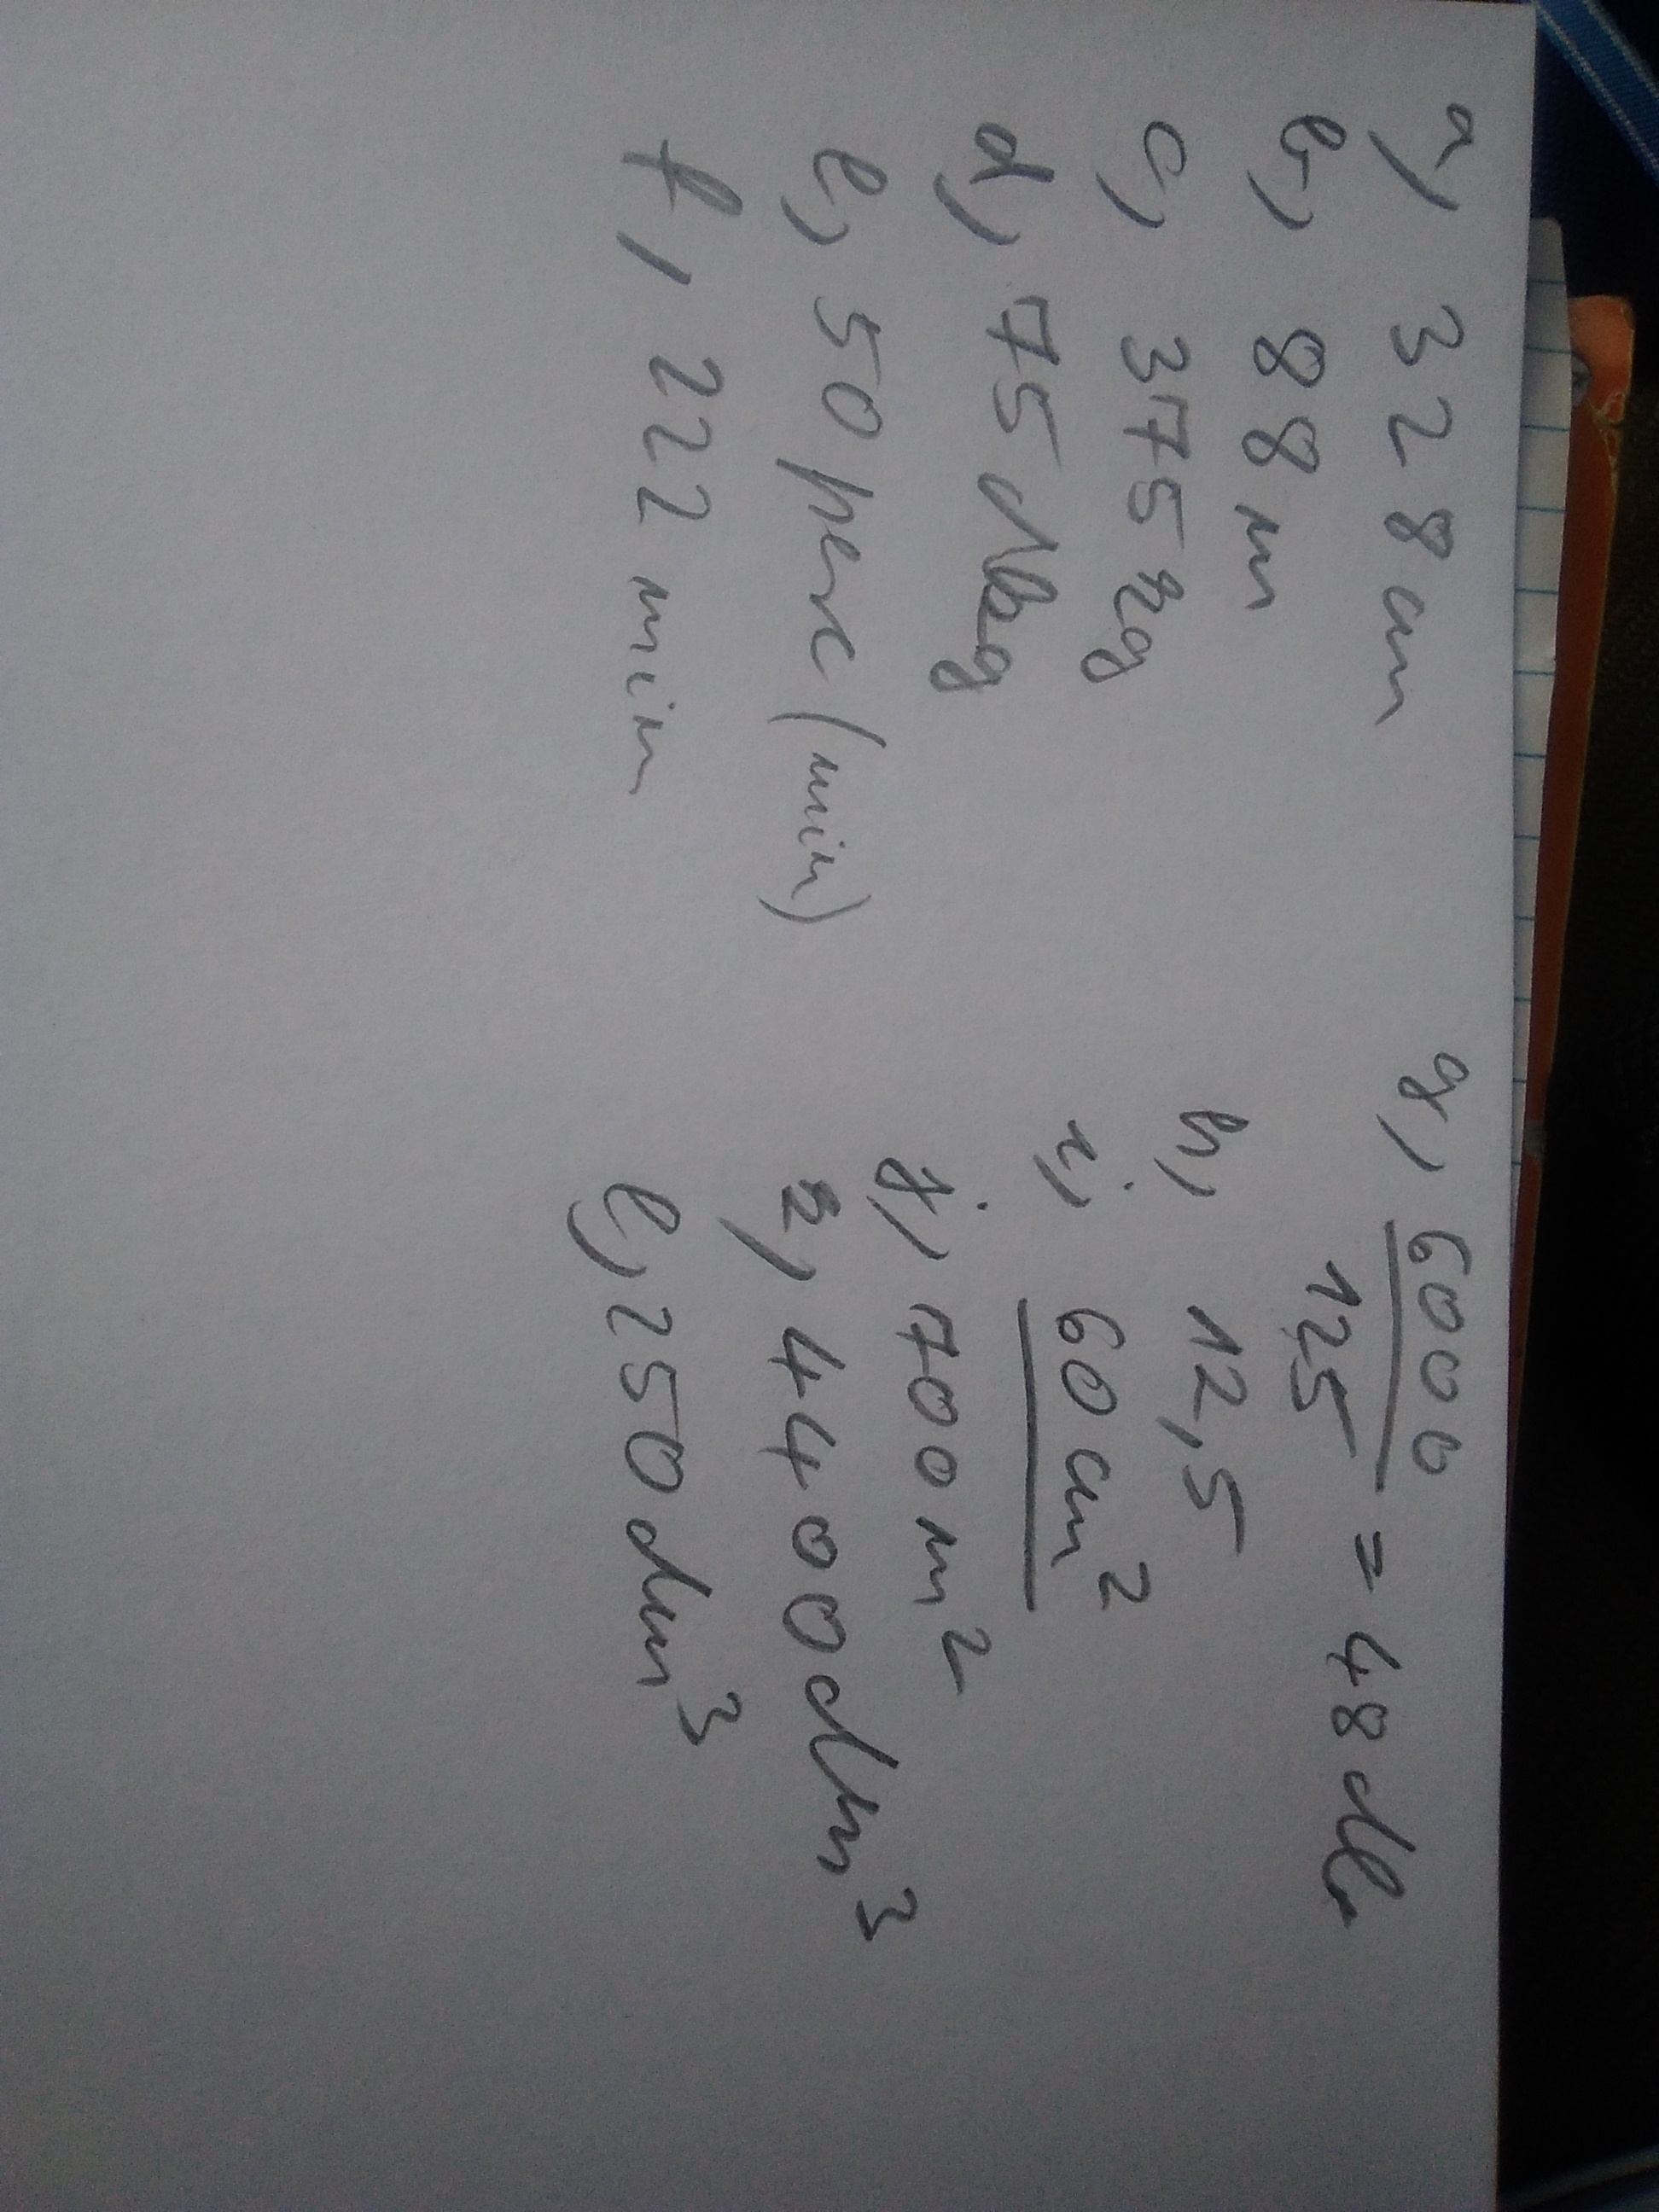 a, 328 cm
b, 88 m
c, 375 kg
d, 75 dkg
e, 50 perc (min)
f, 222 min
g, 6000/125 = 48 db
h, 12,5
i, 60 cm²
j, 700 m²
k, 4400 dm³
l, 250 dm³